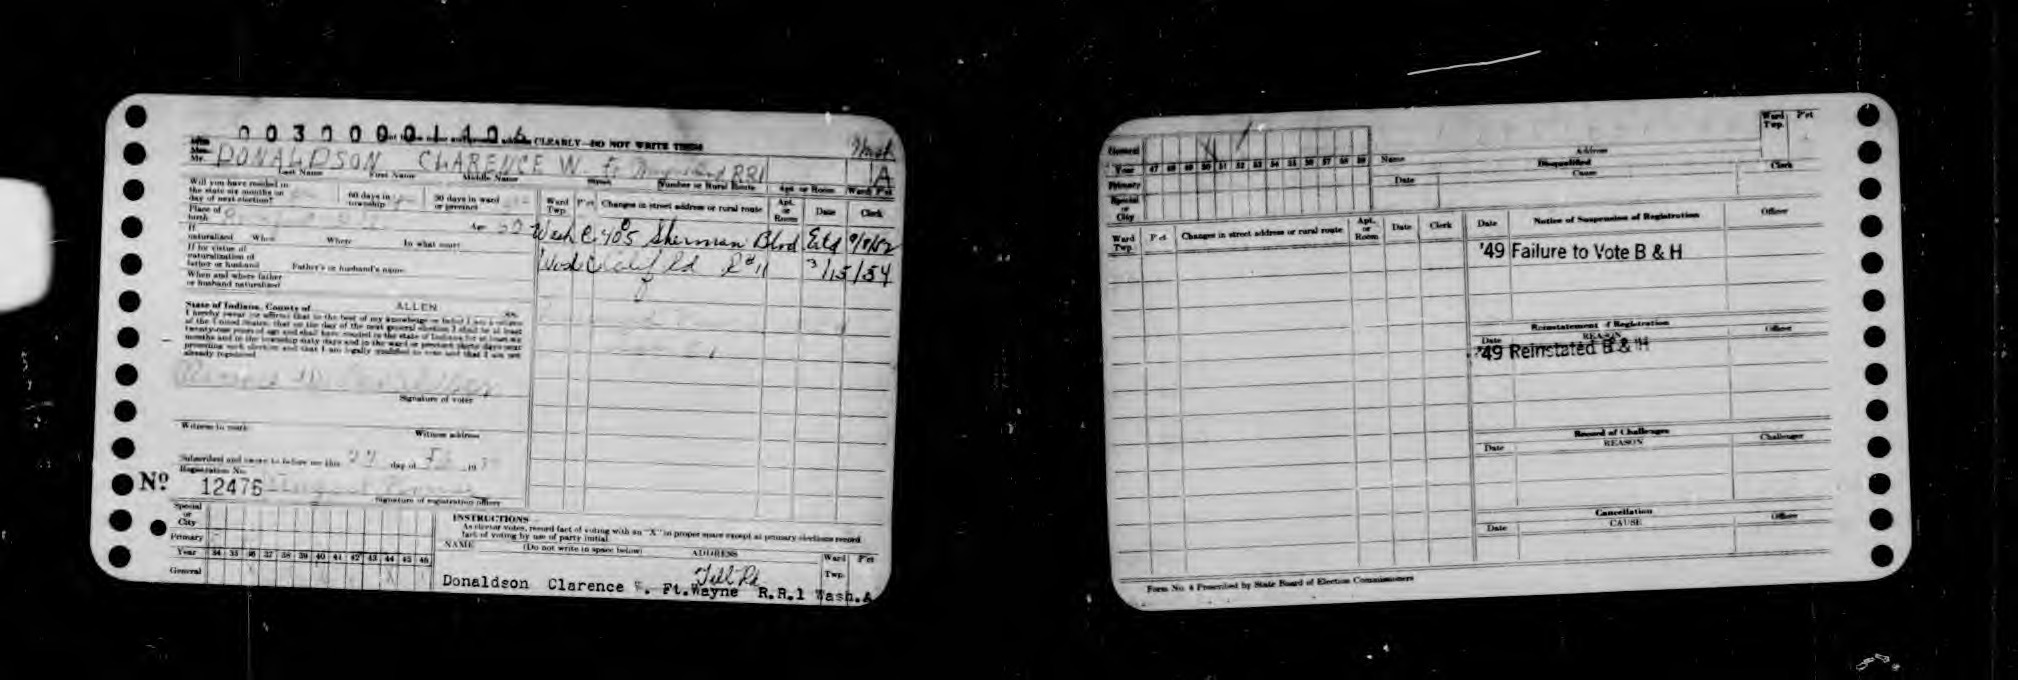 CLEARLY—DO NOT WRITE THEM
Wash
Mr. DONALDSON CLARENCE W. Ft RR1 A
Last Name First Name Middle Name Street Number or Rural Route Apt. or Room Ward P'ct
Will you have resided in
the state six months on
day of next election?
60 days in
township
30 days in ward
or precinct
Place of
birth
Age
If
naturalized When Where In what court
If by virtue of
naturalization of
father or husband Father's or husband's name
When and where father
or husband naturalized
State of Indiana, County of ALLEN SS.
I hereby swear (or affirm) that to the best of my knowledge or belief I am a citizen
of the United States, that on the day of the next general election I shall be at least
twenty-one years of age and shall have resided in the state of Indiana for at least six
months and in the township sixty days and in the ward or precinct thirty days next
preceding such election and that I am legally qualified to vote and that I am not
already registered
Signature of voter
Witness to mark Witness address
Subscribed and sworn to before me this day of 19
Registration No.
Nº 12476
Signature of registration officer
Ward Twp. P'ct Changes in street address or rural route Apt. or Room Date Clerk
Wash C 4005 Sherman Blvd 9/8/52
Wash C Rd R#11 3/15/54
Special
or
City
Primary
Year 34 35 36 37 38 39 40 41 42 43 44 45 46
General
INSTRUCTIONS
As elector votes, record fact of voting with an "X" in proper space except at primary elections record
fact of voting by use of party initial.
NAME (Do not write in space below) ADDRESS Ward Twp. P'ct
Till Rd
Donaldson Clarence Ft.Wayne R.R.1 Wash.A
General
Year 47 48 49 50 51 52 53 54 55 56 57 58 59
Primary
Special
or
City
Name Address Ward Twp. P'ct
Disqualified
Date Cause Clerk
Ward Twp. P'ct Changes in street address or rural route Apt. or Room Date Clerk
Date Notice of Suspension of Registration Officer
'49 Failure to Vote B & H
Reinstatement of Registration
Date REASON Officer
'49 Reinstated B & H
Record of Challenges
Date REASON Challenger
Cancellation
Date CAUSE Officer
Form No. 4 Prescribed by State Board of Election Commissioners